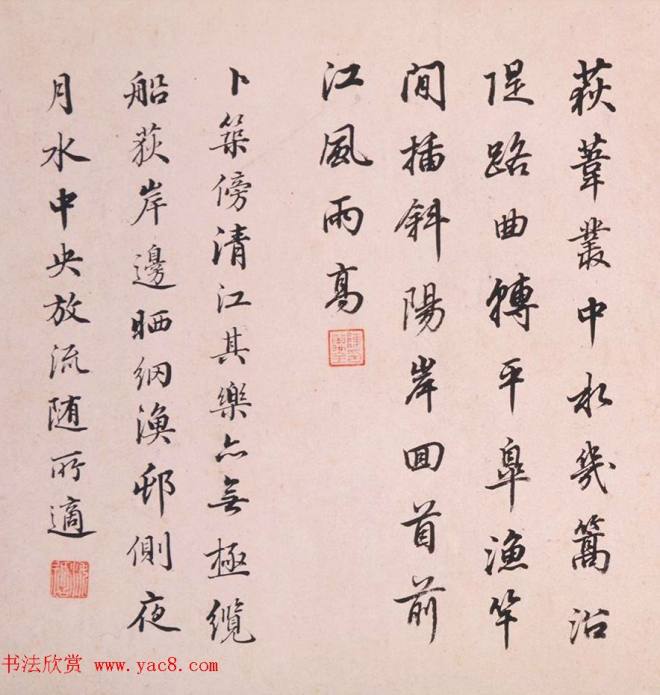 荻葦叢中水幾篙沿
隄路曲轉平皋漁竿
閒插斜陽岸回首前
江風雨高
卜築傍清江其樂亦無極纜
船荻岸邊晒網漁邨側夜
月水中央放流随所適
书法欣赏 www.yac8.com